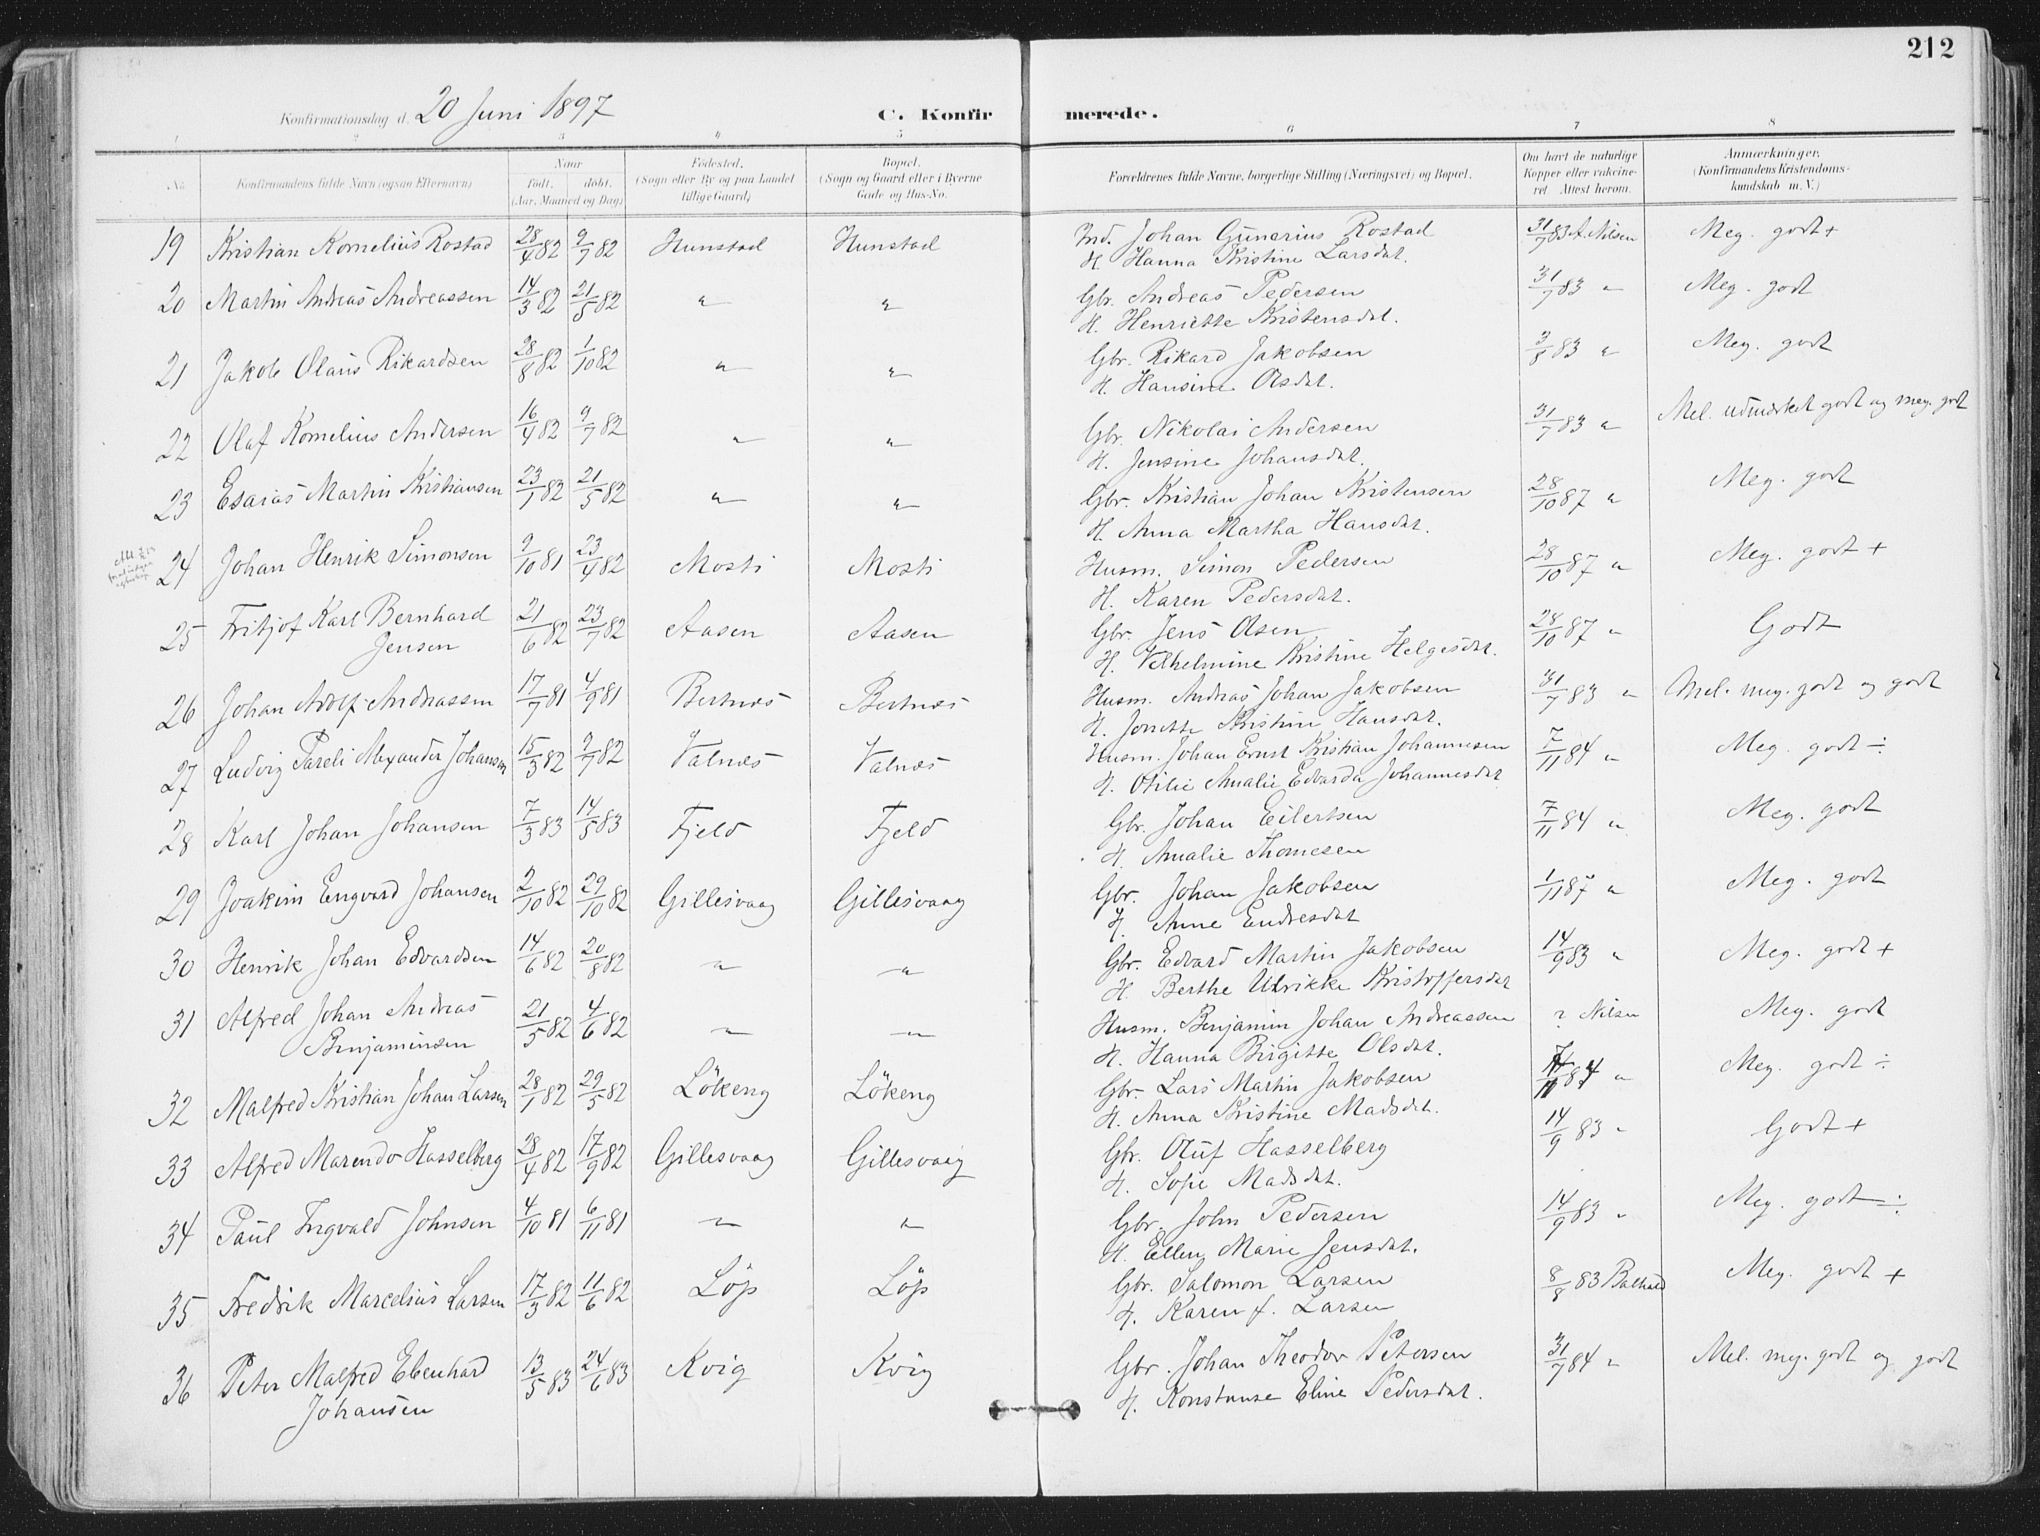 212
Konfirmationsdag d. 20 Juni 1897 C. Konfirmerede.
1 2 3 4 5 6 7 8
No. Konfirmandens fulde Navn (ogsaa Efternavn) Naar Födt. döbt. (Aar, Maaned og Dag) Födested. (Sogn eller By og paa Landet tillige Gaard) Bopæl. (Sogn og Gaard eller i Byerne Gade og Hus-No. Forældrenes fulde Navne, borgerlige Stilling (Næringsvei) og Bopæl. Om havt de naturlige Kopper eller vakcineret. Attest herom. Anmærkninger. (Konfirmandens Kristendomskundskab m. V.)
19 Kristian Kornelius Rostad 28/4 82 9/7 82 Hunstad Hunstad Ind. Johan Gunerius Rostad 31/7 83 A. Nilsen Meg. godt +
H. Hanna Kristine Larsdat.
20 Martin Andreas Andreassen 14/3 82 21/5 82 " " Gbr. Andreas Pedersen 31/7 83 " Meg. godt
H. Henriette Kristensdat.
21 Jakob Olaus Rikardsen 28/8 82 1/10 82 " " Gbr. Rikard Jakobsen 3/8 83 " Meg. godt
H. Hansine Olsdat.
22 Olaf Kornelius Andersen 16/4 82 9/7 82 " " Gbr. Nikolai Andersen 31/7 83 " Mel. udmærket godt og meg. godt
H. Jensine Johansdat.
23 Esaias Martin Kristiansen 23/1 82 21/5 82 " " Gbr. Kristian Johan Kristensen 28/10 87 " Meg. godt
H. Anna Martha Hansdat.
24 Johan Henrik Simonsen 9/10 81 23/4 82 Mosti Mosti Husm. Simon Pedersen 28/10 87 " Meg. godt +
H. Karen Pedersdat.
25 Fritjof Karl Bernhard 21/6 82 23/7 82 Aasen Aasen Gbr. Jens Olsen 28/10 87 " Godt
Jensen H. Vilhelmine Kristine Helgesdat.
26 Johan Adolf Andreassen 17/7 81 4/9 81 Bertnæs Bertnæs Husm. Andreas Johan Jakobsen 31/7 83 " Mel. meg. godt og godt
H. Jonette Kristine Hansdat.
27 Ludvig Pareli Alexander Johansen 15/3 82 9/7 82 Valnæs Valnæs Husm. Johan Ernst Kristian Johannesen 7/11 84 " Meg. godt ÷
H. Otilie Amalie Edvarda Johannesdat
28 Karl Johan Johansen 7/3 83 14/5 83 Fjeld Fjeld Gbr. Johan Eilertsen 7/11 84 " Meg. godt
H. Amalie Thomesen
29 Joakim Engvard Johansen 2/10 82 29/10 82 Gillesvaag Gillesvaag Gbr. Johan Jakobsen 1/11 87 " Meg. godt
H. Anne Endresdat
30 Henrik Johan Edvardsen 14/6 82 20/8 82 " " Gbr. Edvard Martin Jakobsen 14/9 83 " Meg. godt +
H. Berthe Ulrikke Kristoffersdat
31 Alfred Johan Andreas 21/5 82 4/6 82 " " Husm. Benjamin Johan Andreassen ? Nilsen Meg. godt
Benjaminsen H. Hanna Birgitte Olsdat.
32 Malfred Kristian Johan Larsen 28/1 82 29/5 82 Lökeng Lökeng Gbr. Lars Martin Jakobsen 7/11 84 " Meg. godt ÷
H. Anna Kristine Madsdat.
33 Alfred Marendor Hasselberg 28/4 82 17/9 82 Gillesvaag Gillesvaag Gbr. Oluf Hasselberg 14/9 83 " Godt +
H. Sofie Madsdat.
34 Paul Ingvald Johnsen 4/10 81 6/11 81 " " Gbr. John Pedersen 14/9 83 " Meg. godt ÷
H. Ellen Marie Jensdat.
35 Fredrik Marcelius Larsen 17/3 82 11/6 82 Löp Löp Gbr. Salomon Larsen 8/8 83 Meg. godt +
H. Karen f. Larsen
36 Peter Malfred Ebenhard 13/5 83 24/6 83 Kvig Kvig Gbr. Johan Theodor Petersen 31/7 84 " Mel. meg. godt og godt
Johansen H. Konstanse Eline Pedersdat.